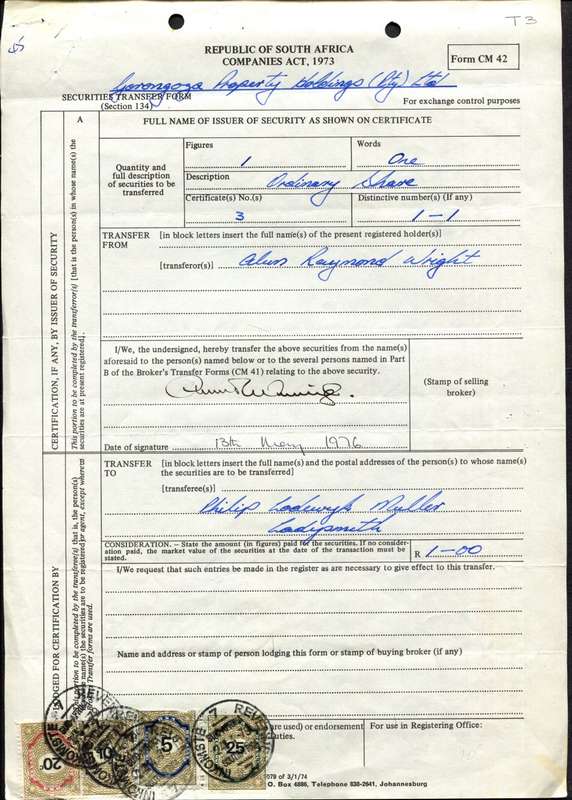 T3
REPUBLIC OF SOUTH AFRICA
COMPANIES ACT, 1973
Form CM 42
Gorongoza Property Holdings (Pty) Ltd
SECURITIES TRANSFER FORM
(Section 134)
For exchange control purposes
A
FULL NAME OF ISSUER OF SECURITY AS SHOWN ON CERTIFICATE
Quantity and full description of securities to be transferred
Figures
1
Words
One
Description
Ordinary Share
Certificate(s) No.(s)
3
Distinctive number(s) (If any)
1-1
CERTIFICATION, IF ANY, BY ISSUER OF SECURITY
This portion to be completed by the transferor(s) [that is the person(s) in whose name(s) the
securities are at present registered].
TRANSFER FROM
[in block letters insert the full name(s) of the present registered holder(s)]
[transferor(s)] Alun Raymond Wright
I/We, the undersigned, hereby transfer the above securities from the name(s)
aforesaid to the person(s) named below or to the several persons named in Part
B of the Broker's Transfer Forms (CM 41) relating to the above security.
(Stamp of selling broker)
Date of signature 13th May 1976
LODGED FOR CERTIFICATION BY
TRANSFER TO
[in block letters insert the full name(s) and the postal addresses of the person(s) to whose name(s)
the securities are to be transferred]
[transferee(s)]
Philip Lodewyk Muller
Ladysmith
CONSIDERATION. – State the amount (in figures) paid for the securities. If no consider-
ation paid, the market value of the securities at the date of the transaction must be
stated.
R 1-00
I/We request that such entries be made in the register as are necessary to give effect to this transfer.
Name and address or stamp of person lodging this form or stamp of buying broker (if any)
are used) or endorsement
duties.
For use in Registering Office:
20
10
5
25
REVENUE
INKOMSTE
079 of 3/1/74
O. Box 6886, Telephone 838-2641, Johannesburg